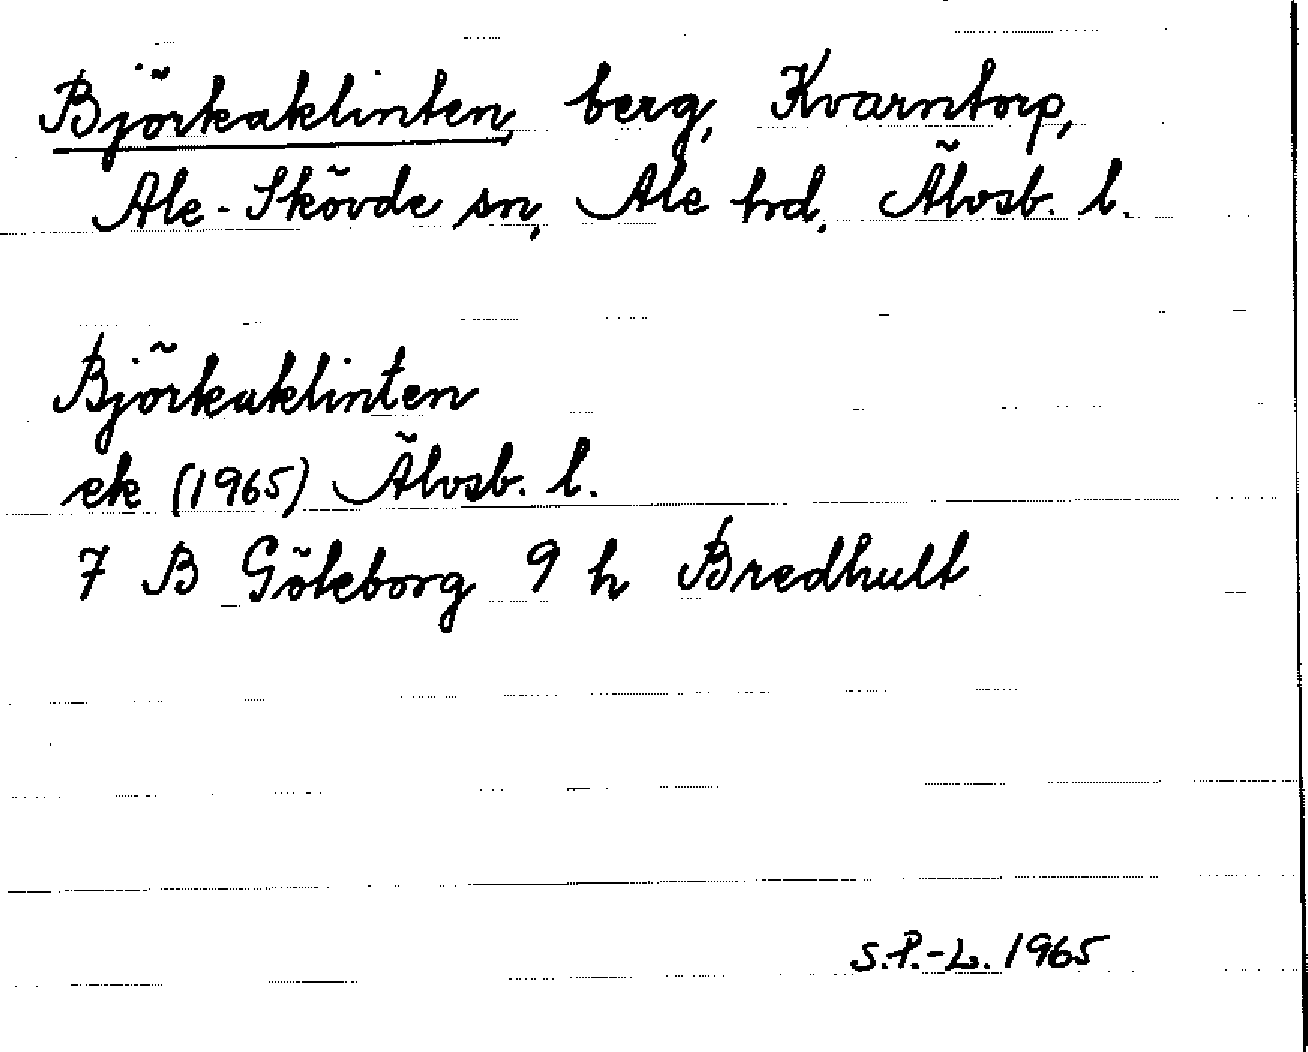 Björkaklinten, berg, Kvarntorp,
Ale-Skövde sn, Ale hd, Älvsb. l.
Björkaklinten
ek (1965) Älvsb. l.
7 B Göteborg 9 h Bredhult
S.P.-L. 1965